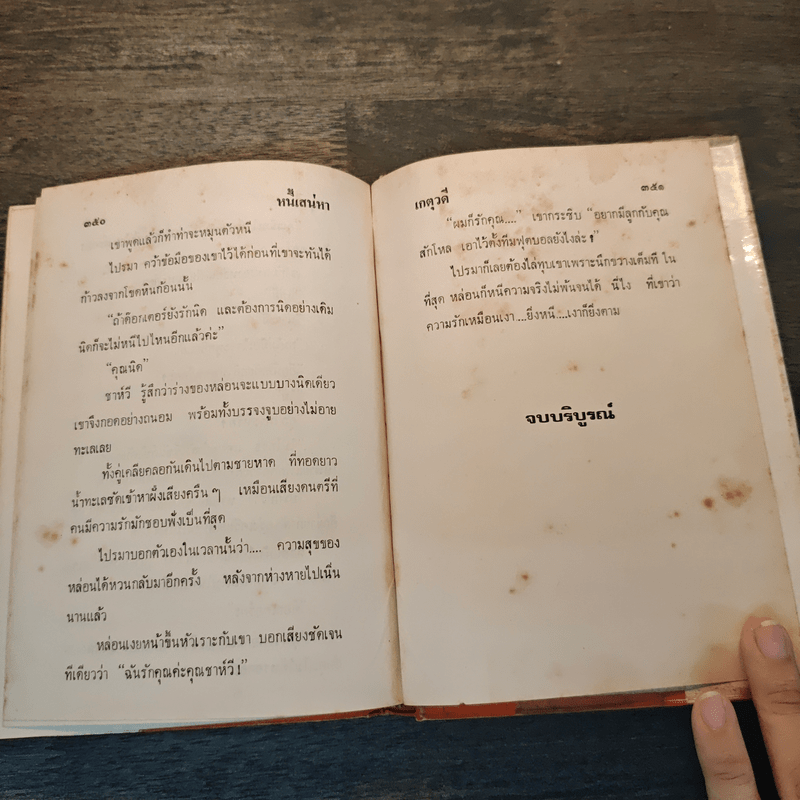 ๓๕๐ หนี้เสน่หา
เขาพูดแล้วก็ทำท่าจะหมุนตัวหนี
ไปรมา คว้าข้อมือของเขาไว้ได้ก่อนที่เขาจะทันได้
ก้าวลงจากโขดหินก้อนนั้น
“ถ้าด๊อกเตอร์ยังรักนิด และต้องการนิดอย่างเดิม
นิดก็จะไม่หนีไปไหนอีกแล้วค่ะ”
“คุณนิด”
ชาห์วี รู้สึกว่าร่างของหล่อนจะแบบบางนิดเดียว
เขาจึงกอดอย่างถนอม พร้อมทั้งบรรจงจูบอย่างไม่อาย
ทะเลเลย
ทั้งคู่เคลียคลอกันเดินไปตามชายหาด ที่ทอดยาว
น้ำทะเลซัดเข้าหาฝั่งเสียงครืน ๆ เหมือนเสียงดนตรีที่
คนมีความรักมักชอบฟังเป็นที่สุด
ไปรมาบอกตัวเองในเวลานั้นว่า.... ความสุขของ
หล่อนได้หวนกลับมาอีกครั้ง หลังจากห่างหายไปเนิ่น
นานแล้ว
หล่อนเงยหน้าขึ้นหัวเราะกับเขา บอกเสียงชัดเจน
ทีเดียวว่า “ฉันรักคุณค่ะคุณชาห์วี !”
เกตุวดี ๓๕๑
“ผมก็รักคุณ....” เขากระซิบ “อยากมีลูกกับคุณ
สักโหล เอาไว้ตั้งทีมฟุตบอลยังไงล่ะ !
ไปรมาก็เลยต้องไล่ทุบเขาเพราะนึกขวางเต็มที ใน
ที่สุด หล่อนก็หนีความจริงไม่พ้นจนได้ นี่ไง ที่เขาว่า
ความรักเหมือนเงา....ยิ่งหนี....เงาก็ยิ่งตาม
จบบริบูรณ์